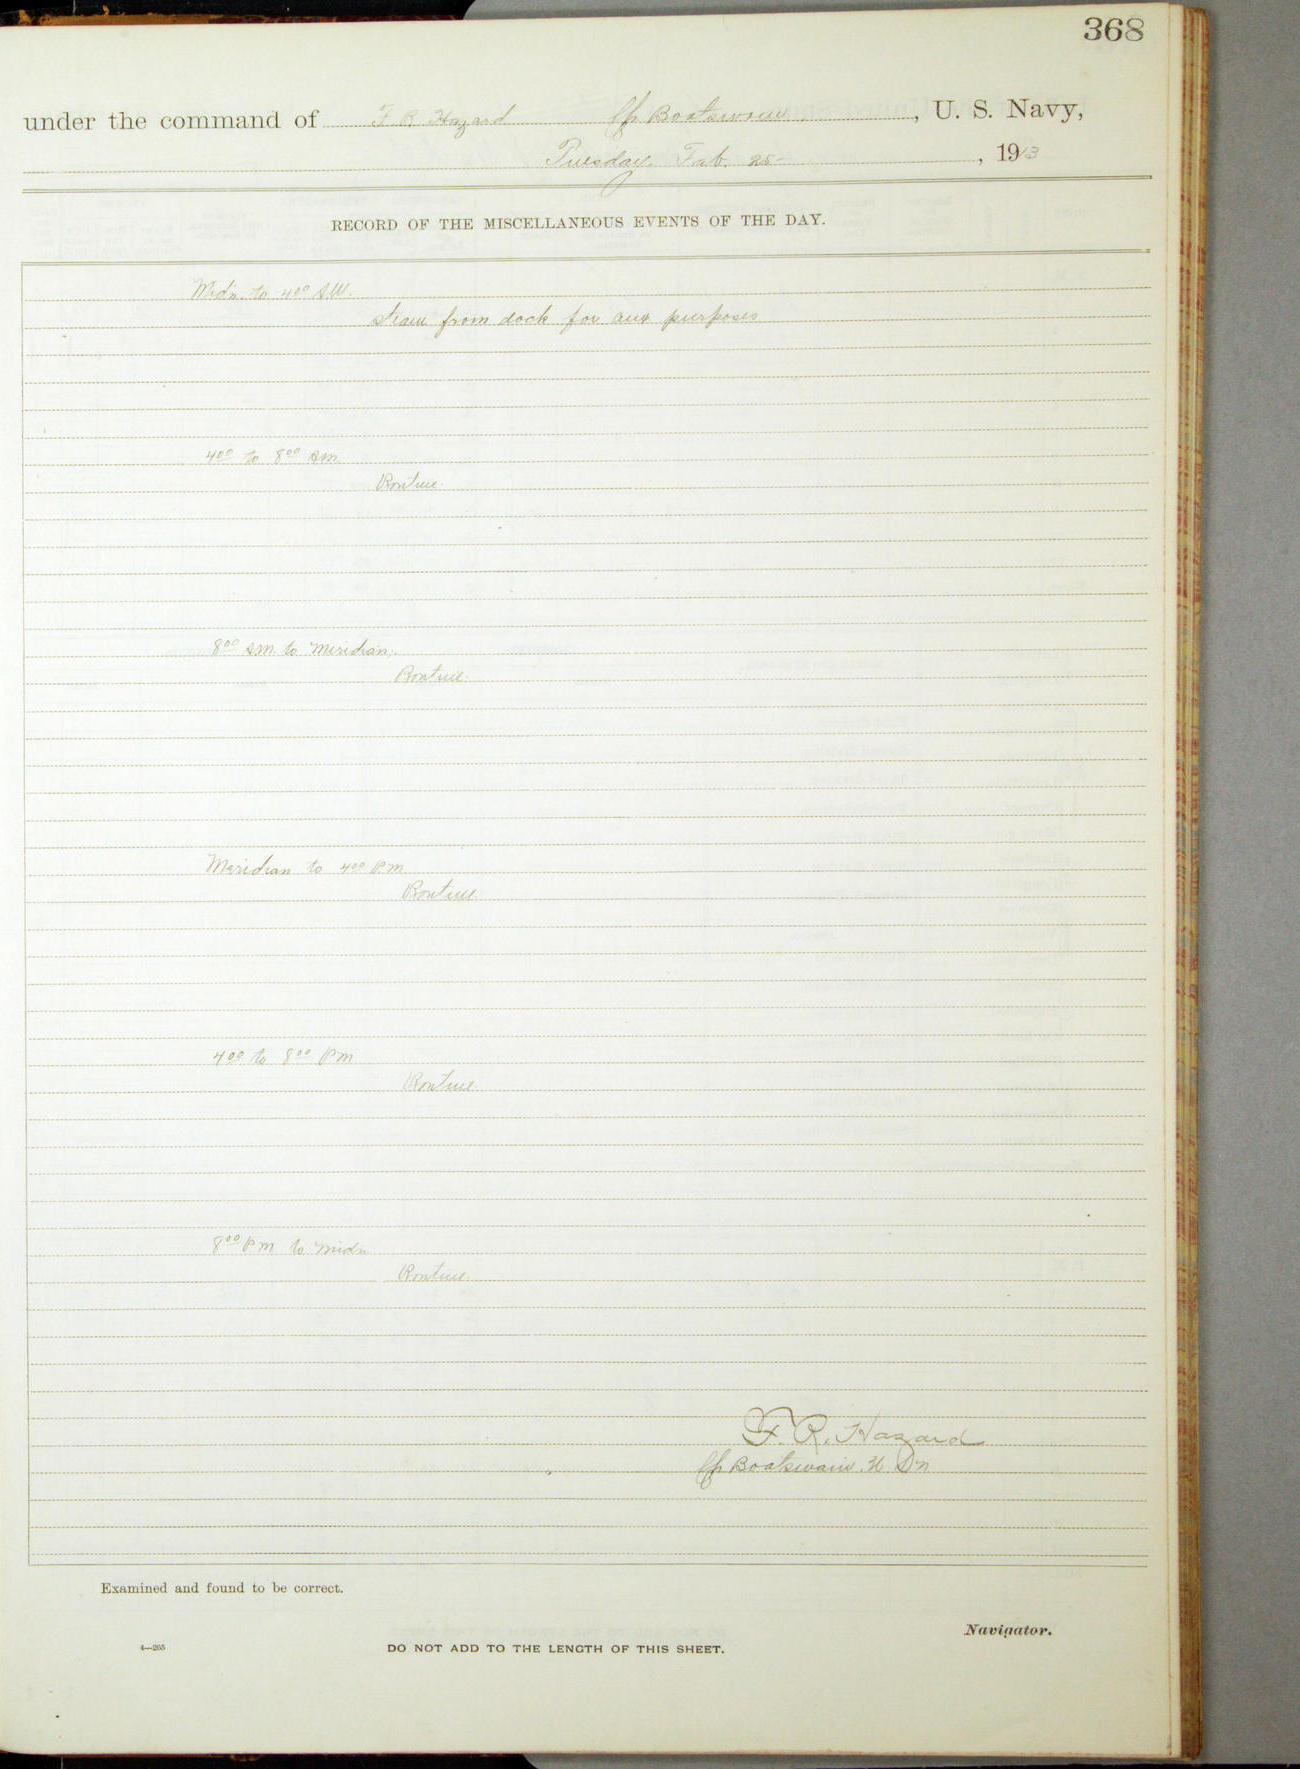 368
under the command of F. R. Hazard Ch Boatswain, U. S. Navy,
Tuesday. Feb. 25, 1913
RECORD OF THE MISCELLANEOUS EVENTS OF THE DAY.
Mid'n. to 4⁰⁰ AM.
Steam from dock for aux purposes
4⁰⁰ to 8⁰⁰ AM.
Routine.
8⁰⁰ AM. to Meridian.
Routine.
Meridian to 4⁰⁰ P.M
Routine.
4⁰⁰ to 8⁰⁰ P.M
Routine.
8⁰⁰ P.M to Midn
Routine.
F. R. Hazard
Ch Boatswain. U. S. N
Examined and found to be correct.
Navigator.
4—265
DO NOT ADD TO THE LENGTH OF THIS SHEET.